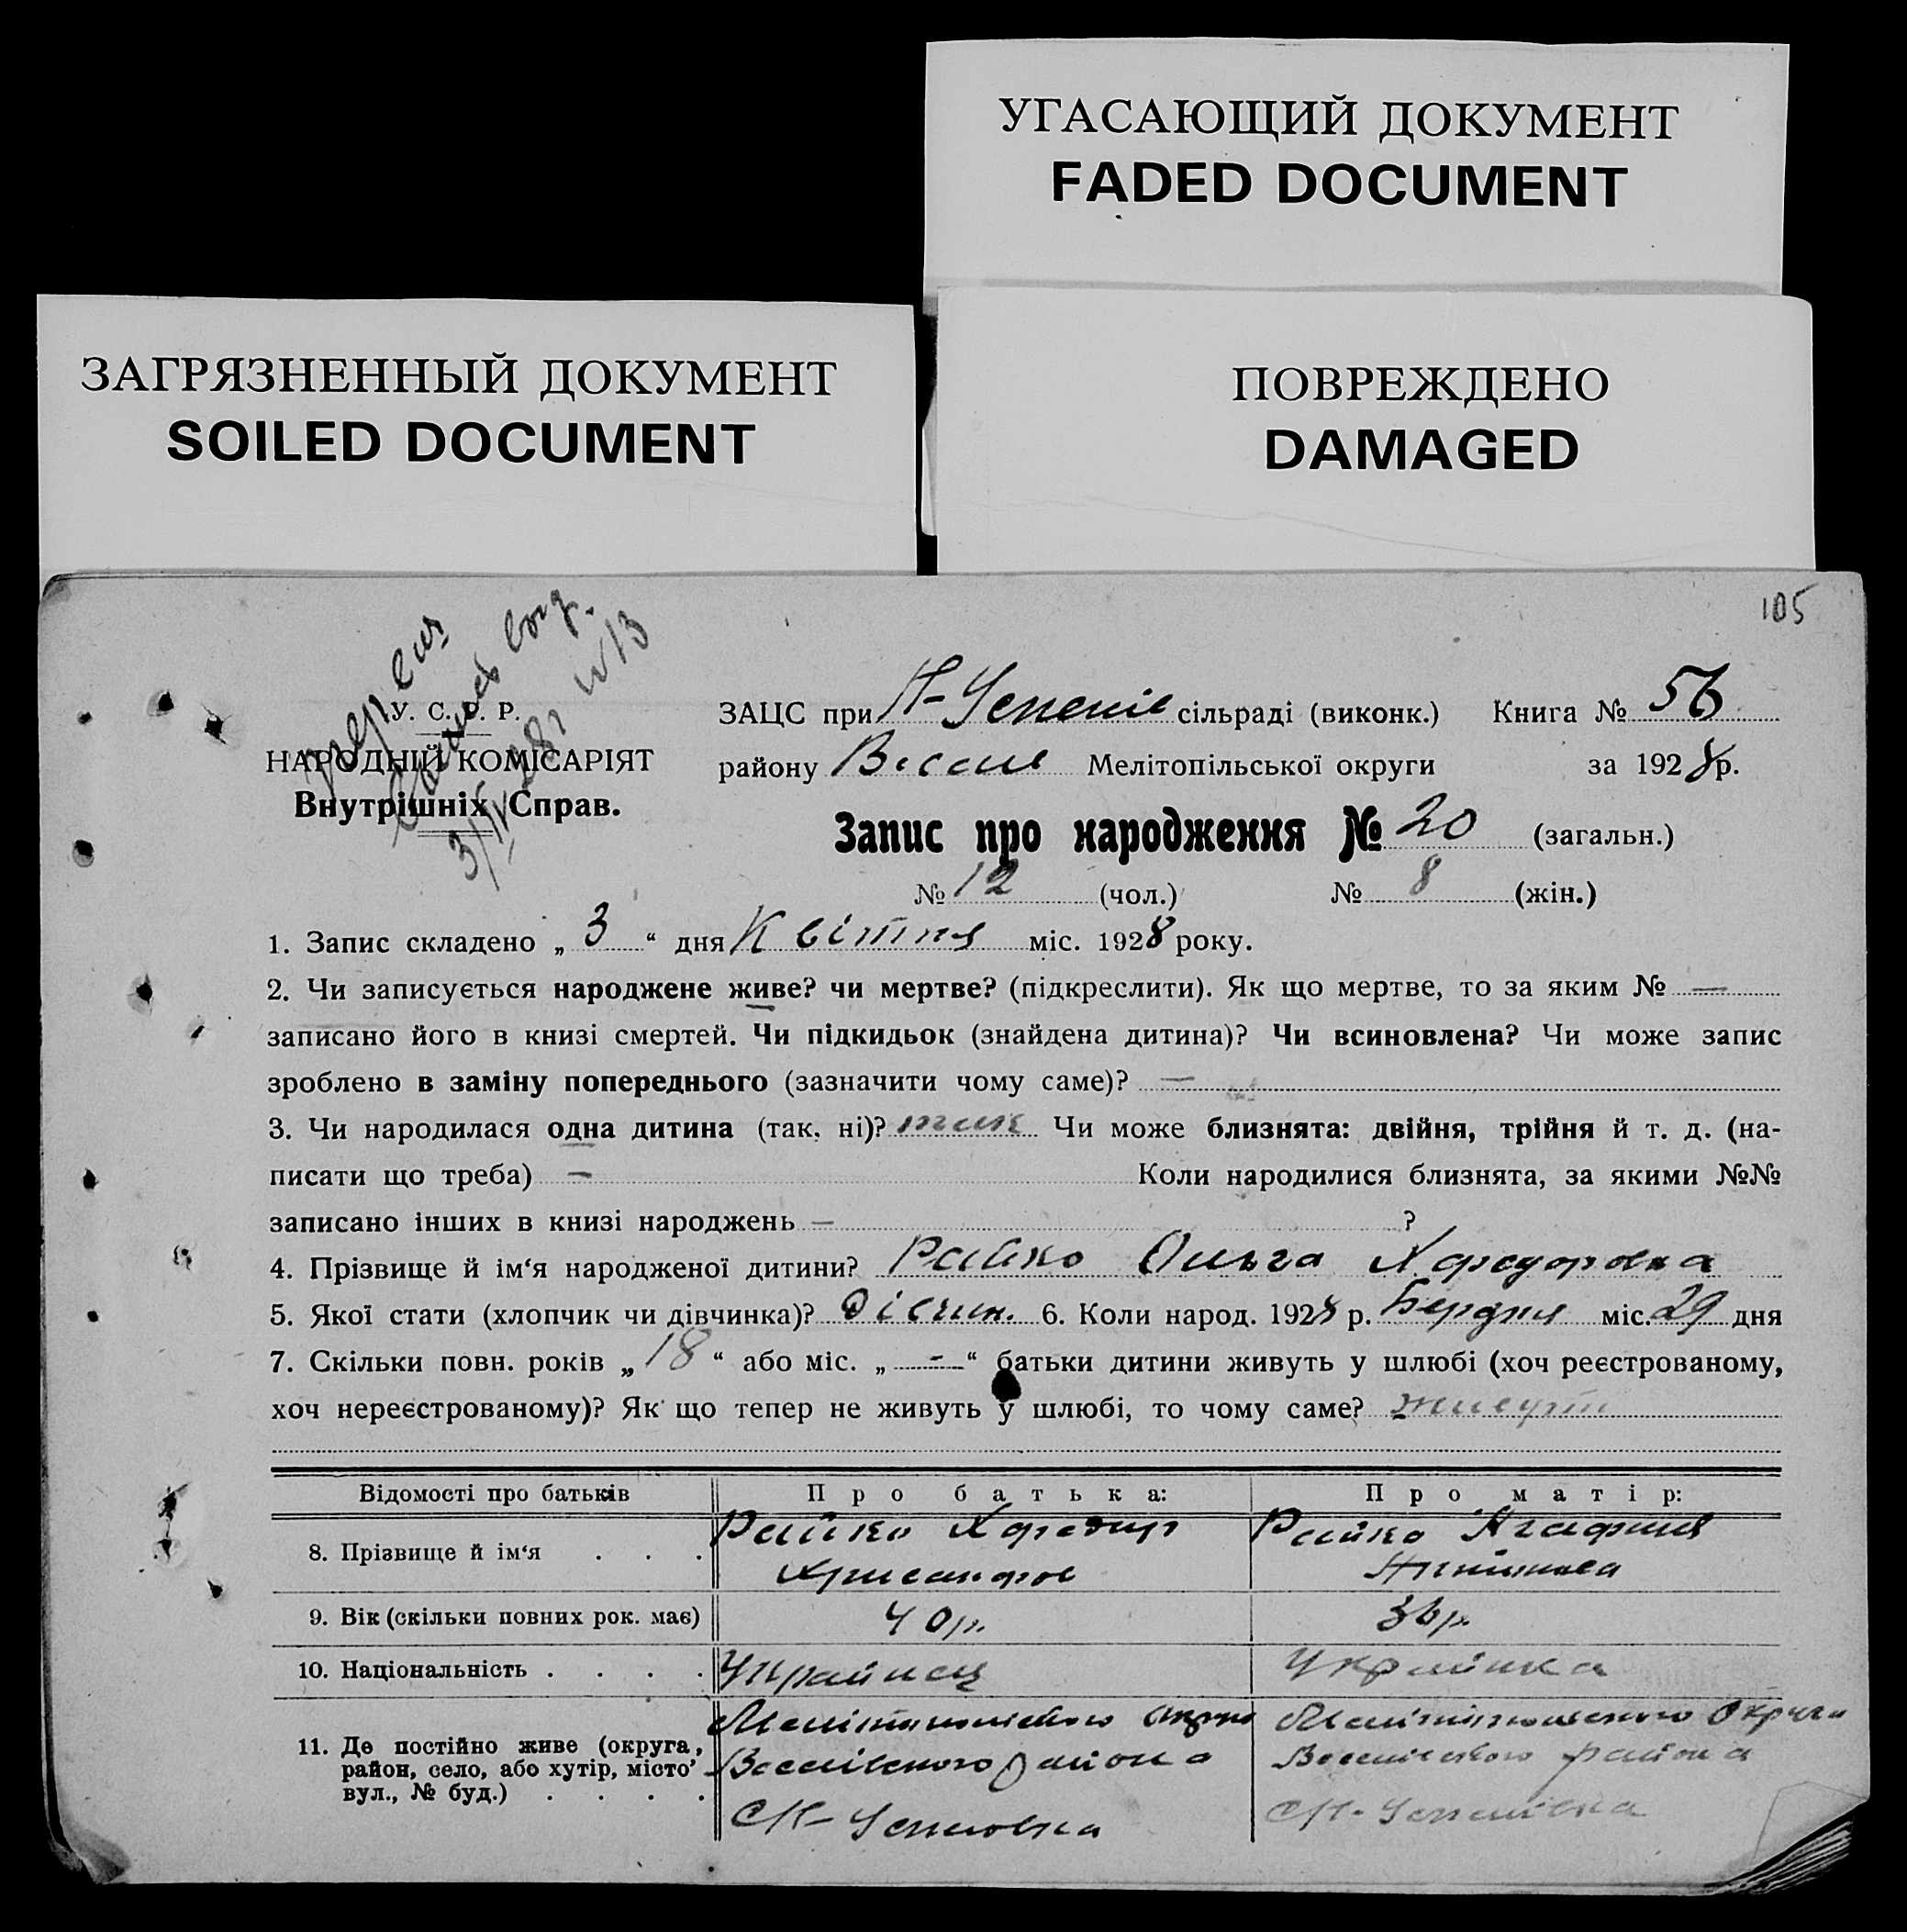 УГАСАЮЩИЙ ДОКУМЕНТ
FADED DOCUMENT
ЗАГРЯЗНЕННЫЙ ДОКУМЕНТ
SOILED DOCUMENT
ПОВРЕЖДЕНО
DAMAGED
105
У. С. Р. Р.
НАРОДНІЙ КОМІСАРІЯТ
Внутрішніх Справ.
ЗАЦС при Н-Успенів сільраді (виконк.) Книга № 56
району Весели Мелітопільської округи за 1928 р.
Запис про народження № 20 (загальн.)
№ 12 (чол.) № 8 (жін.)
1. Запис складено „ 3 “ дня Квітня міс. 1928 року.
2. Чи записується народжене живе? чи мертве? (підкреслити). Як що мертве, то за яким № —
записано його в книзі смертей. Чи підкидьок (знайдена дитина)? Чи всиновлена? Чи може запис
зроблено в заміну попереднього (зазначити чому саме)? —
3. Чи народилася одна дитина (так, ні)? так Чи може близнята: двійня, трійня й т. д. (на-
писати що треба) — Коли народилися близнята, за якими №№
записано інших в книзі народжень — ?
4. Прізвище й ім‘я народженої дитини? Райко Ольга
5. Якої стати (хлопчик чи дівчинка)? Дівчин. 6. Коли народ. 1928 р. Бердня міс. 29 дня
7. Скільки повн. років „ 18 “ або міс. „ - “ батьки дитини живуть у шлюбі (хоч реєстрованому,
хоч нереєстрованому)? Як що тепер не живуть у шлюбі, то чому саме? живуть
Відомості про батьків Про батька: Про матір:
8. Прізвище й ім‘я . . . Райко Райко Агафия
9. Вік (скільки повних рок. має) 40 р. 36 р.
10. Національність . . . . Українец Українка
11. Де постійно живе (округа, Округи
район, село, або хутір, місто, Веселівского района Веселівского района
вул., № буд.) . . . . С Н-Успеновка С Н-Успенівка